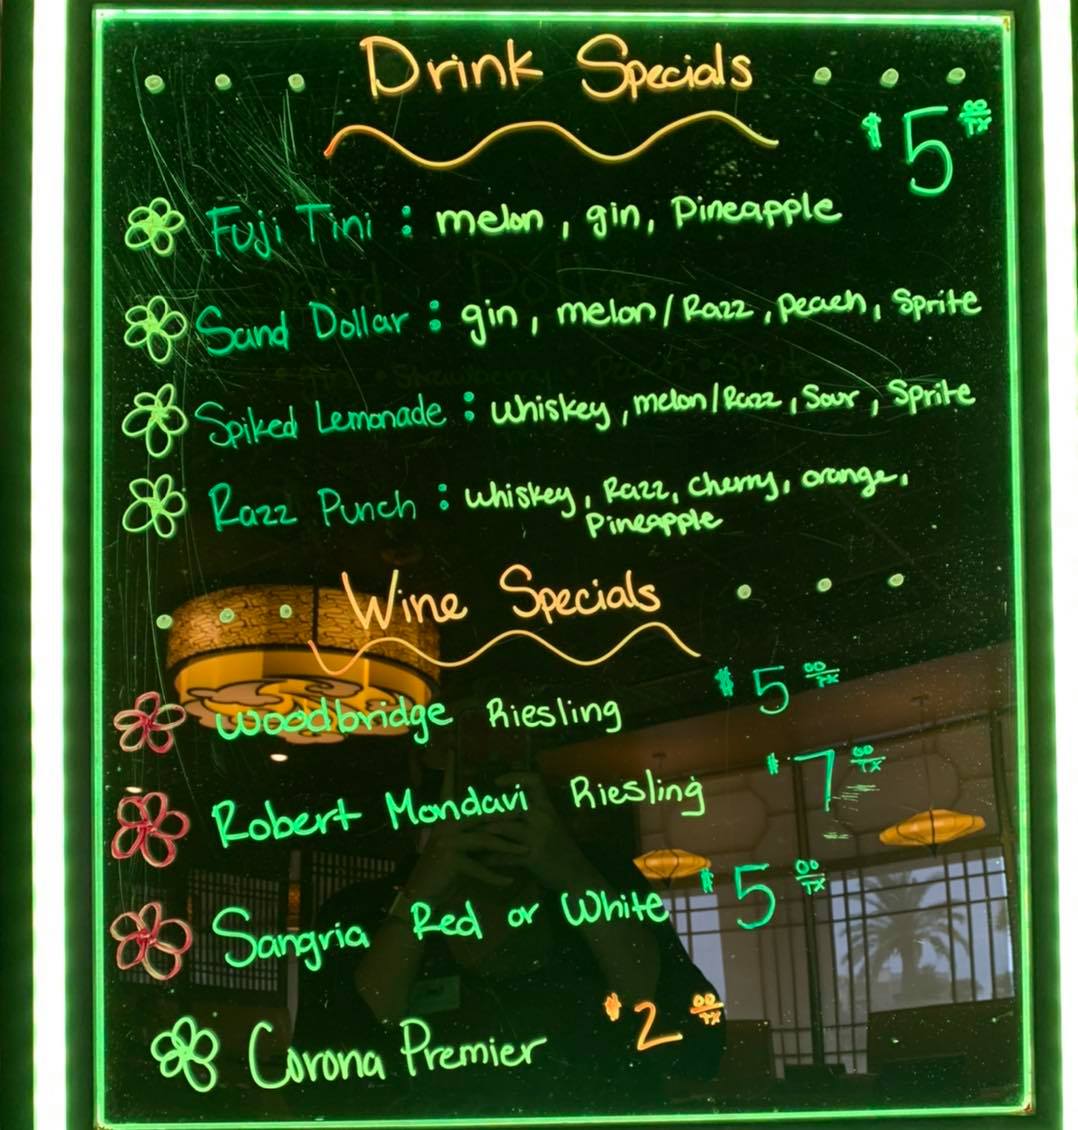 Drink Specials
$5 00/TX
Fuji Tini : melon , gin, Pineapple
Sand Dollar : gin , melon / Razz , peach , Sprite
Spiked Lemonade : Whiskey , melon/Razz , Sour , Sprite
Razz Punch : whiskey , Razz, cherry, orange,
Pineapple
Wine Specials
Woodbridge Riesling $5 00/TX
Robert Mondavi Riesling $7 00/TX
Sangria Red or White $5 00/TX
Corona Premier $2 00/TX